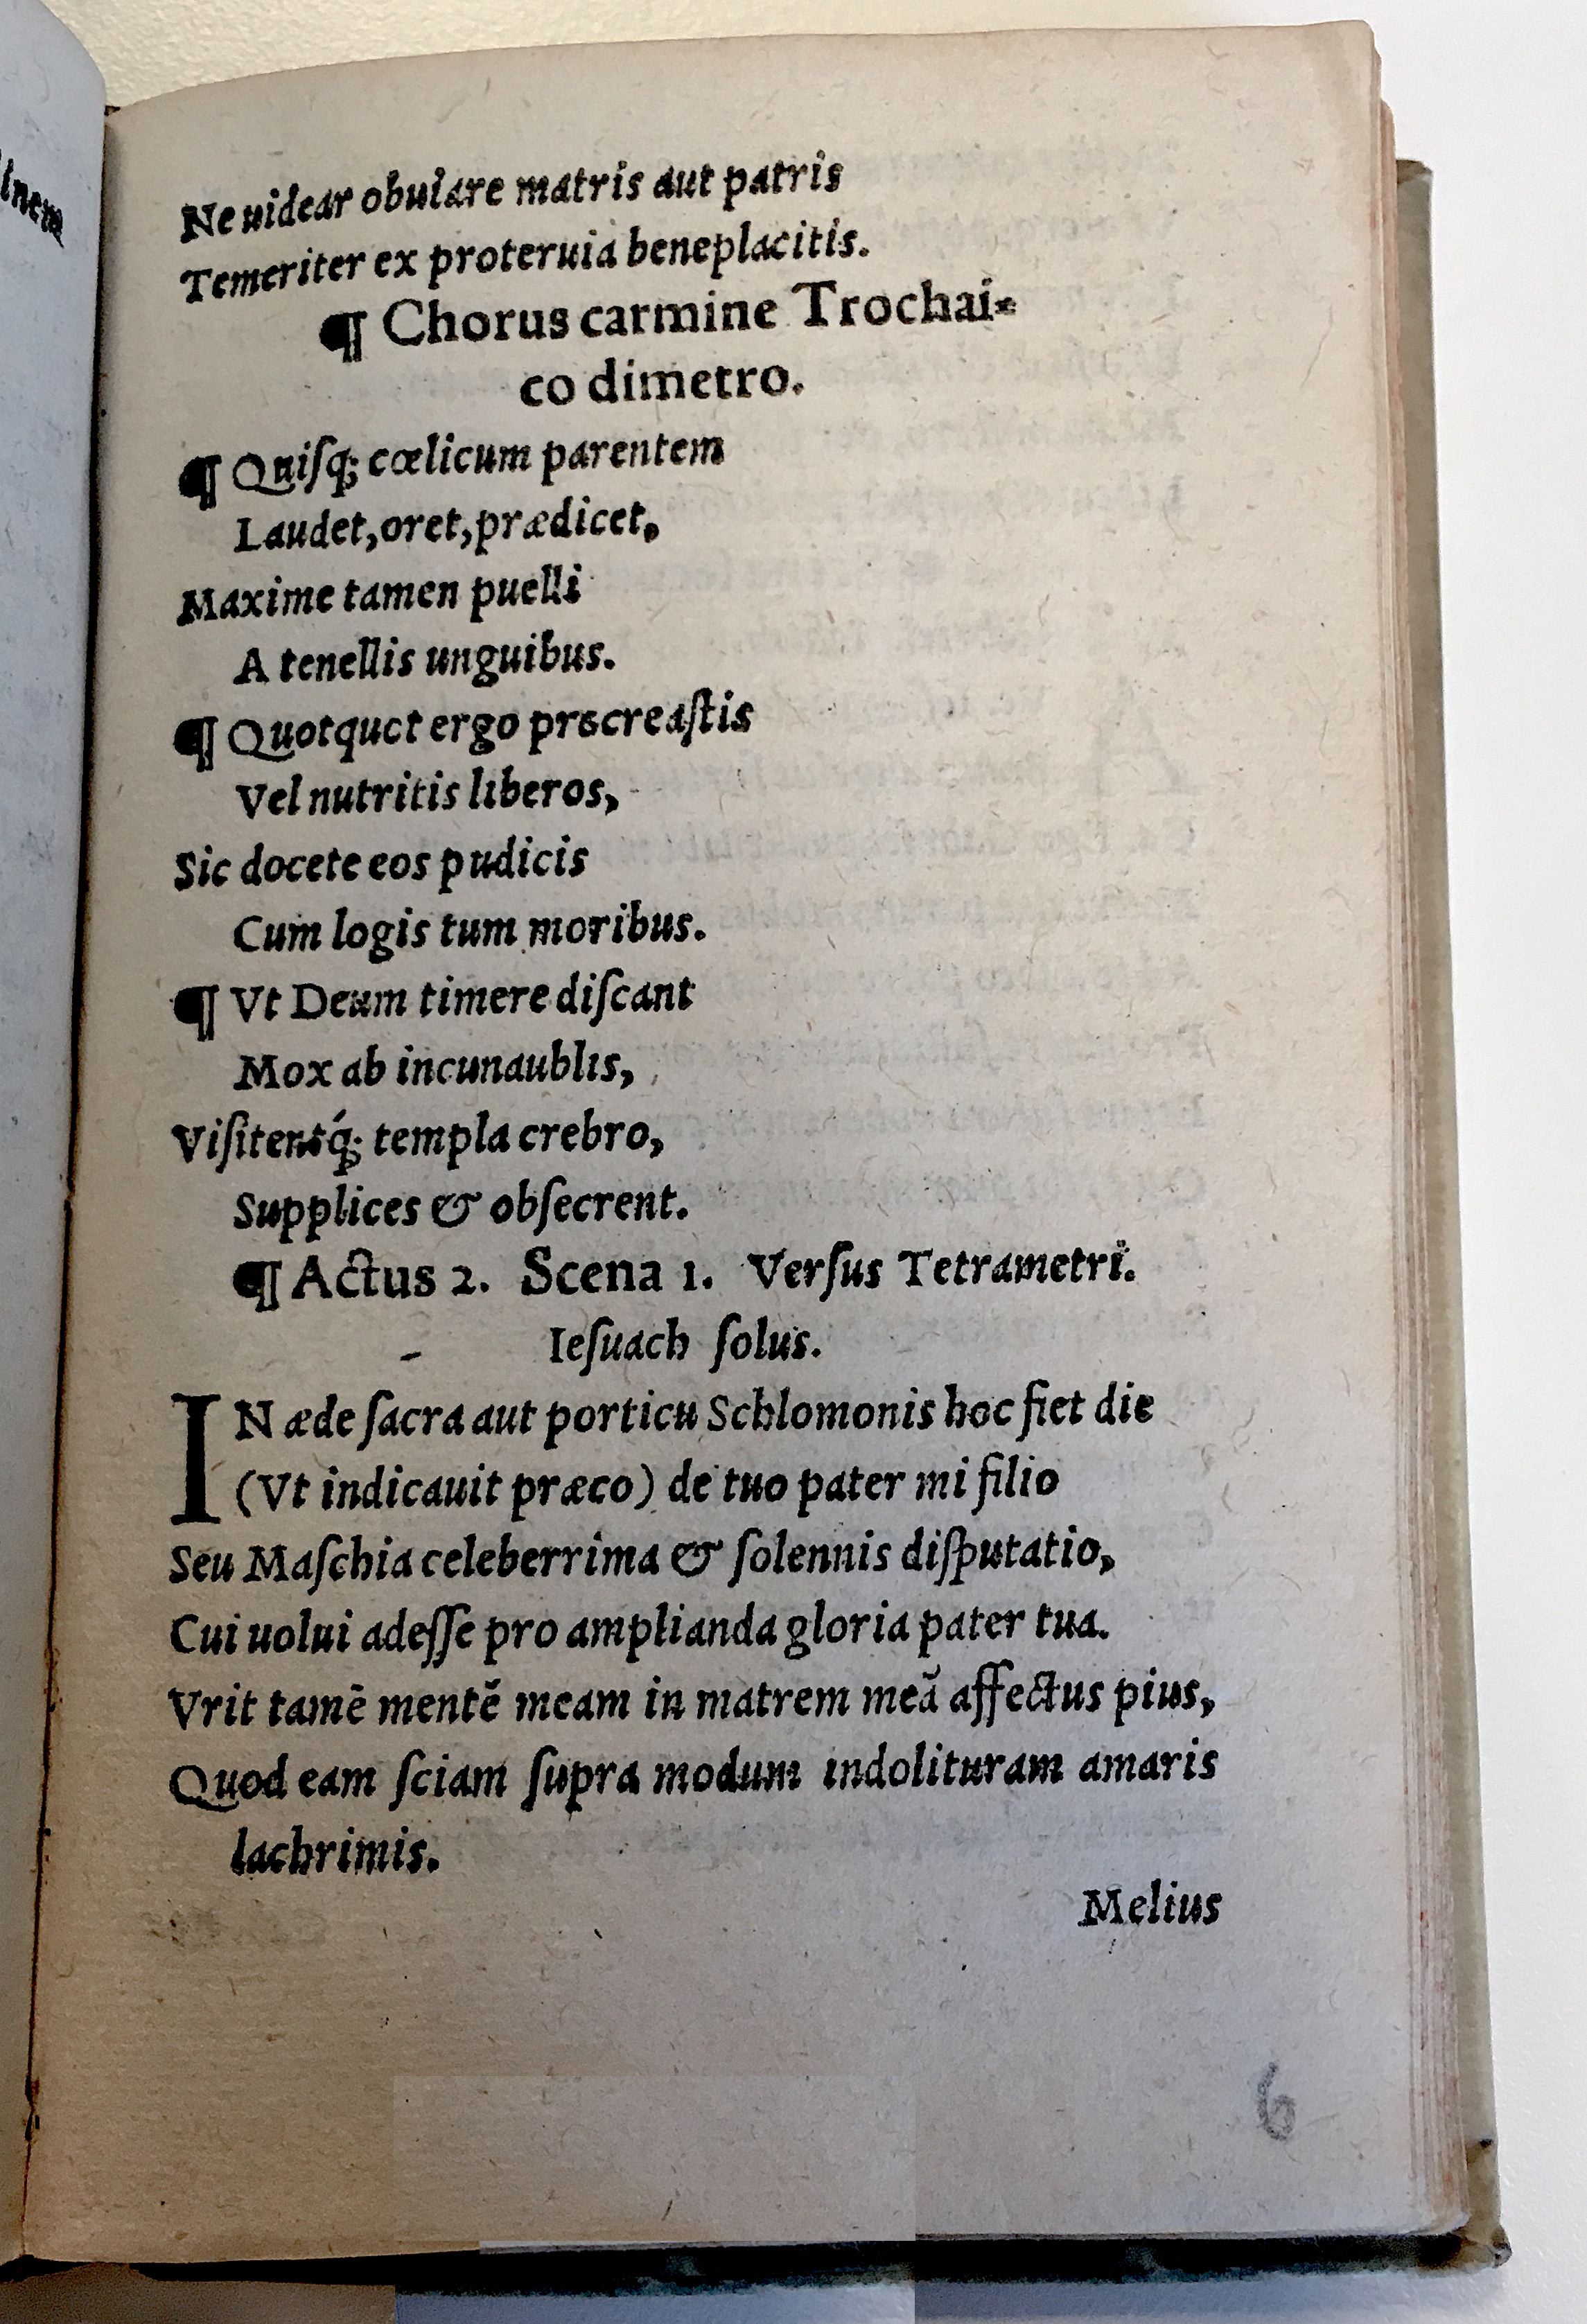 Ne uidear obulare matris aut patris
Temeriter ex proteruia beneplacitis.
¶ Chorus carmine Trochai⸗
co dimetro.
¶ Quiſq; cœlicum parentem
Laudet, oret, prædicet,
Maxime tamen puelli
A tenellis unguibus.
¶ Quotquct ergo procreaſtis
Vel nutritis liberos,
Sic docete eos pudicis
Cum logis tum moribus.
¶ Vt Deum timere diſcant
Mox ab incunaublis,
Viſitentq́; templa crebro,
Supplices & obſecrent.
¶ Actus 2. Scena 1. Verſus Tetrametri.
Ieſuach ſolus.
IN æde ſacra aut porticu Schlomonis hoc fiet die
(Vt indicauit præco) de tuo pater mi filio
Seu Maſchia celeberrima & ſolennis diſputatio,
Cui uolui adeſſe pro amplianda gloria pater tua.
Vrit tamē mentē meam in matrem meā affectus pius,
Quod eam ſciam ſupra modum indolituram amaris
lachrimis.
Melius
6